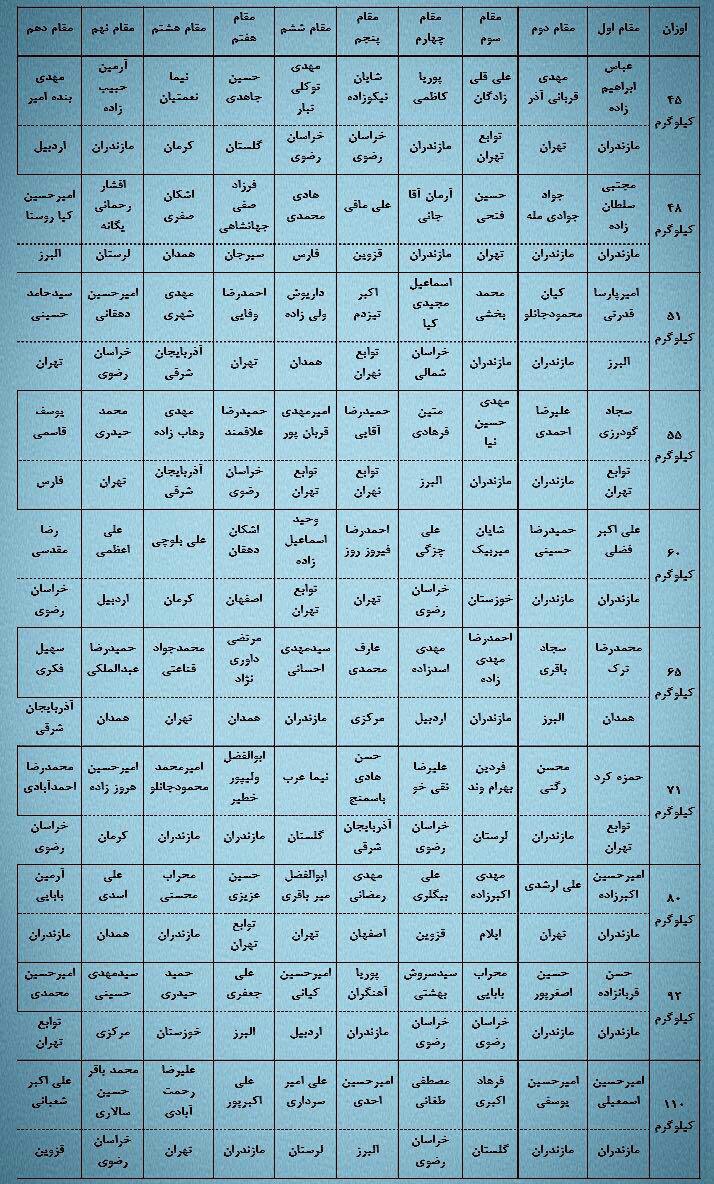 اوزان مقام اول مقام دوم مقام سوم مقام چهارم مقام پنجم مقام ششم مقام هفتم مقام هشتم مقام نهم مقام دهم
۴۵ کیلوگرم عباس ابراهیم زاده مهدی قربانی آذر علی قلی زادگان پوریا کاظمی شایان نیکوزاده مهدی توکلی تبار حسین جاهدی نیما نعمتیان آرمین حبیب زاده مهدی بنده امیر
مازندران تهران توابع تهران مازندران خراسان رضوی خراسان رضوی گلستان کرمان مازندران اردبیل
۴۸ کیلوگرم مجتبی سلطان زاده جواد جوادی مله حسین فتحی آرمان آقا جانی علی مافی هادی محمدی فرزاد صفی جهانشاهی اشکان صفری افشار رحمانی یگانه امیرحسین کیا روستا
مازندران مازندران تهران مازندران قزوین فارس سیرجان همدان لرستان البرز
۵۱ کیلوگرم امیرپارسا قدرتی کیان محمودجانلو محمد بخشی اسماعیل مجیدی کیا اکبر تیزدم داریوش ولی زاده احمدرضا وفایی مهدی شهری امیرحسین دهقانی سیدحامد حسینی
البرز مازندران مازندران خراسان شمالی توابع تهران همدان تهران آذربایجان شرقی خراسان رضوی تهران
۵۵ کیلوگرم سجاد گودرزی علیرضا احمدی مهدی حسین نیا متین فرهادی حمیدرضا آقایی امیرمهدی قربان پور حمیدرضا علاقمند مهدی وهاب زاده محمد حیدری یوسف قاسمی
توابع تهران مازندران مازندران البرز توابع تهران توابع تهران خراسان رضوی آذربایجان شرقی تهران فارس
۶۰ کیلوگرم علی اکبر فضلی حمیدرضا حسینی شایان میربیک علی چزگی احمدرضا فیروز روز وحید اسماعیل زاده اشکان دهقان علی بلوچی علی اعظمی رضا مقدسی
مازندران مازندران خوزستان خراسان رضوی تهران توابع تهران اصفهان کرمان اردبیل خراسان رضوی
۶۵ کیلوگرم محمدرضا ترک سجاد باقری احمدرضا مهدی زاده مهدی اسدزاده عارف محمدی سیدمهدی احسانی مرتضی داوری نژاد محمدجواد قناعتی حمیدرضا عبدالملکی سهیل فکری
همدان البرز مازندران اردبیل مرکزی مازندران همدان تهران همدان آذربایجان شرقی
۷۱ کیلوگرم حمزه کرد محسن رگتی فردین بهرام وند علیرضا نقی خو حسن هادی باسمنج نیما عرب ابوالفضل ولیپور خطیر امیرمحمد محمودجانلو امیرحسین هروز زاده محمدرضا احمدآبادی
توابع تهران مازندران لرستان خراسان رضوی آذربایجان شرقی گلستان مازندران مازندران کرمان خراسان رضوی
۸۰ کیلوگرم امیرحسین اکبرزاده علی ارشدی مهدی اکبرزاده علی بیگلری مهدی رمضانی ابوالفضل میر باقری حسین عزیزی محراب محسنی علی اسدی آرمین بابایی
مازندران تهران ایلام قزوین اصفهان تهران توابع تهران مازندران همدان مازندران
۹۲ کیلوگرم حسن قربانزاده حسین اصغرپور محراب بابایی سیدسروش بهشتی پوریا آهنگران امیرحسین کیانی علی جعفری حمید حیدری سیدمهدی حسینی امیرحسین محمدی
مازندران مازندران خراسان رضوی خراسان رضوی مازندران اردبیل البرز خوزستان مرکزی توابع تهران
۱۱۰ کیلوگرم امیرحسین اسمعیلی امیرحسین یوسفی فرهاد اکبری مصطفی طغانی امیرحسین احدی علی امیر سرداری علی اکبرپور علیرضا رحمت آبادی محمد باقر حسین سالاری علی اکبر شعبانی
مازندران مازندران گلستان خراسان رضوی البرز لرستان مازندران تهران خراسان رضوی قزوین